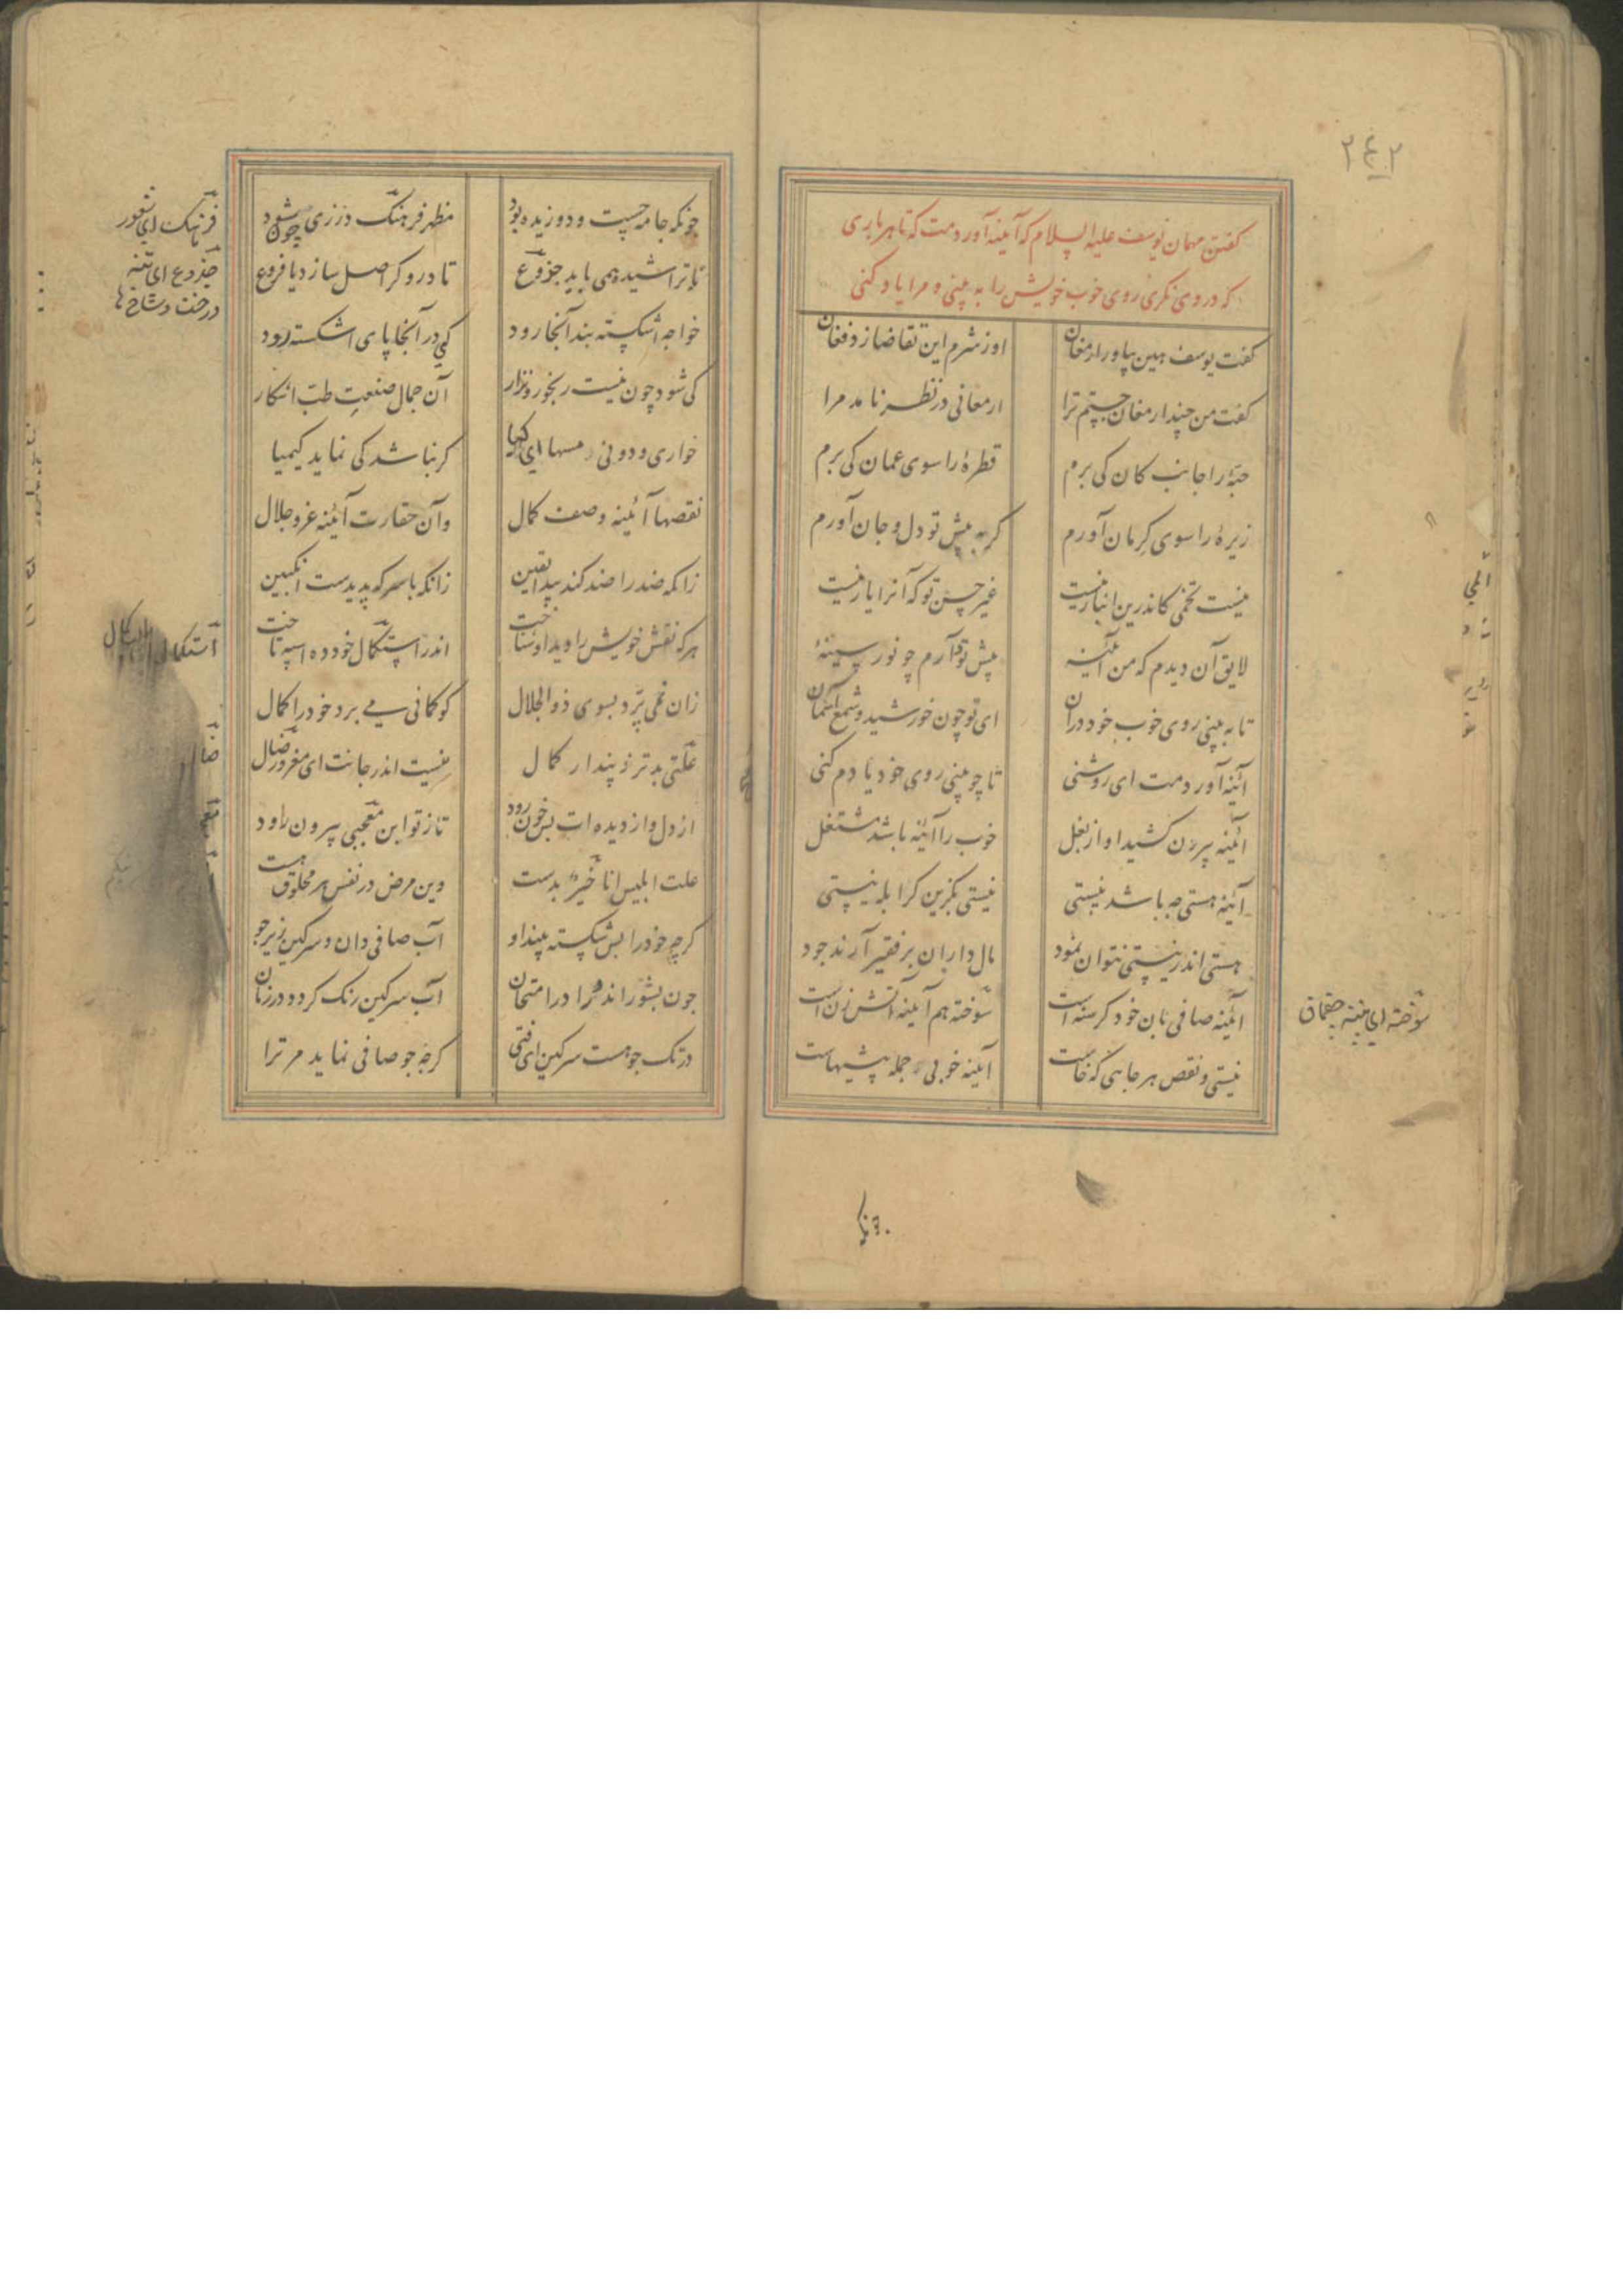 ۲۴۲
کفتن مهمان یوسف علیه السلام که آینه آوردمت که تا هر باری
که در وی نکری روی خوب خویش را به بینی و مرا یاد کنی
کفت یوسف هین بیاور ارمغان اوز شرم این تقاضا زد فغان
کفت من چند ارمغان جستم ترا ارمغانی در نظر نامد مرا
حبهٔ را جانب کان کی برم قطرهٔ را سوی عمان کی برم
زیرهٔ را سوی کرمان آورم کر به پیش تو دل و جان آورم
نیست تخمی کاندرین انبار نیست غیر حسن تو که آنرا یار نیست
لایق آن دیدم که من آئینه پیش تو آرم چو نور سینهٔ
تا به بینی روی خوب خود در آن ای تو چون خورشید و شمع آسمان
آئینه آوردمت ای روشنی تا چو بینی روی خود یادم کنی
آئینه بیرون کشید او از بغل خوب را آئینه باشد مشتغل
آئینه هستی چه باشد نیستی نیستی بکزین کر ابله نیستی
هستی اندر نیستی بتوان نمود مال داران بر فقیر آرند جود
آئینه صافی نان خود کرسنه است سوخته هم آئینه آتش زن است
نیستی و نقص هر جایی که خاست آینه خوبی جمله پیشهاست
سوخته ای پنبه چقماق
چونکه جامه چست و دوزیده بود مظهر فرهنک درزی چون شود
ناتراشیده همی باید جذوع تا دروکر اصل سازد یا فروع
خواجه اشکسته بند آنجا رود کی در آنجا پای اشکسته رود
کی شود چون نیست رنجور و نزار آن جمال صنعت طب آشکار
خواری و دونی مسها ای کیا کر نباشد کی نماید کیمیا
نقصها آئینه وصف کمال وآن حقارت آئینه عز و جلال
زانکه ضد را ضد کند پیدا یقین زانکه با سرکه پدیدست انکبین
هر که نقش خویش را دید او شناخت اندر استکمال خود ده اسپه تاخت
زان نمی پرد بسوی ذو الجلال کو کمانی می برد خود را کمال
علتی بدتر ز پندار کمال نیست اندر جانت ای مغرور ضال
از دل و از دیده ات بس خون رود تا ز تو این معجبی بیرون رود
علت ابلیس انا خیر بدست وین مرض در نفس هر مخلوق هست
کرچه خود را بس شکسته بیند او آب صافی دان و سرکین زیر جو
چون بشوراند ترا در امتحان آب سرکین رنک کردد در زمان
در تک جو هست سرکین ای فتی کرچه جو صافی نماید مر ترا
فرهنک ای شعور
جذوع ای تنه
درخت و شاخ ها
استکمال